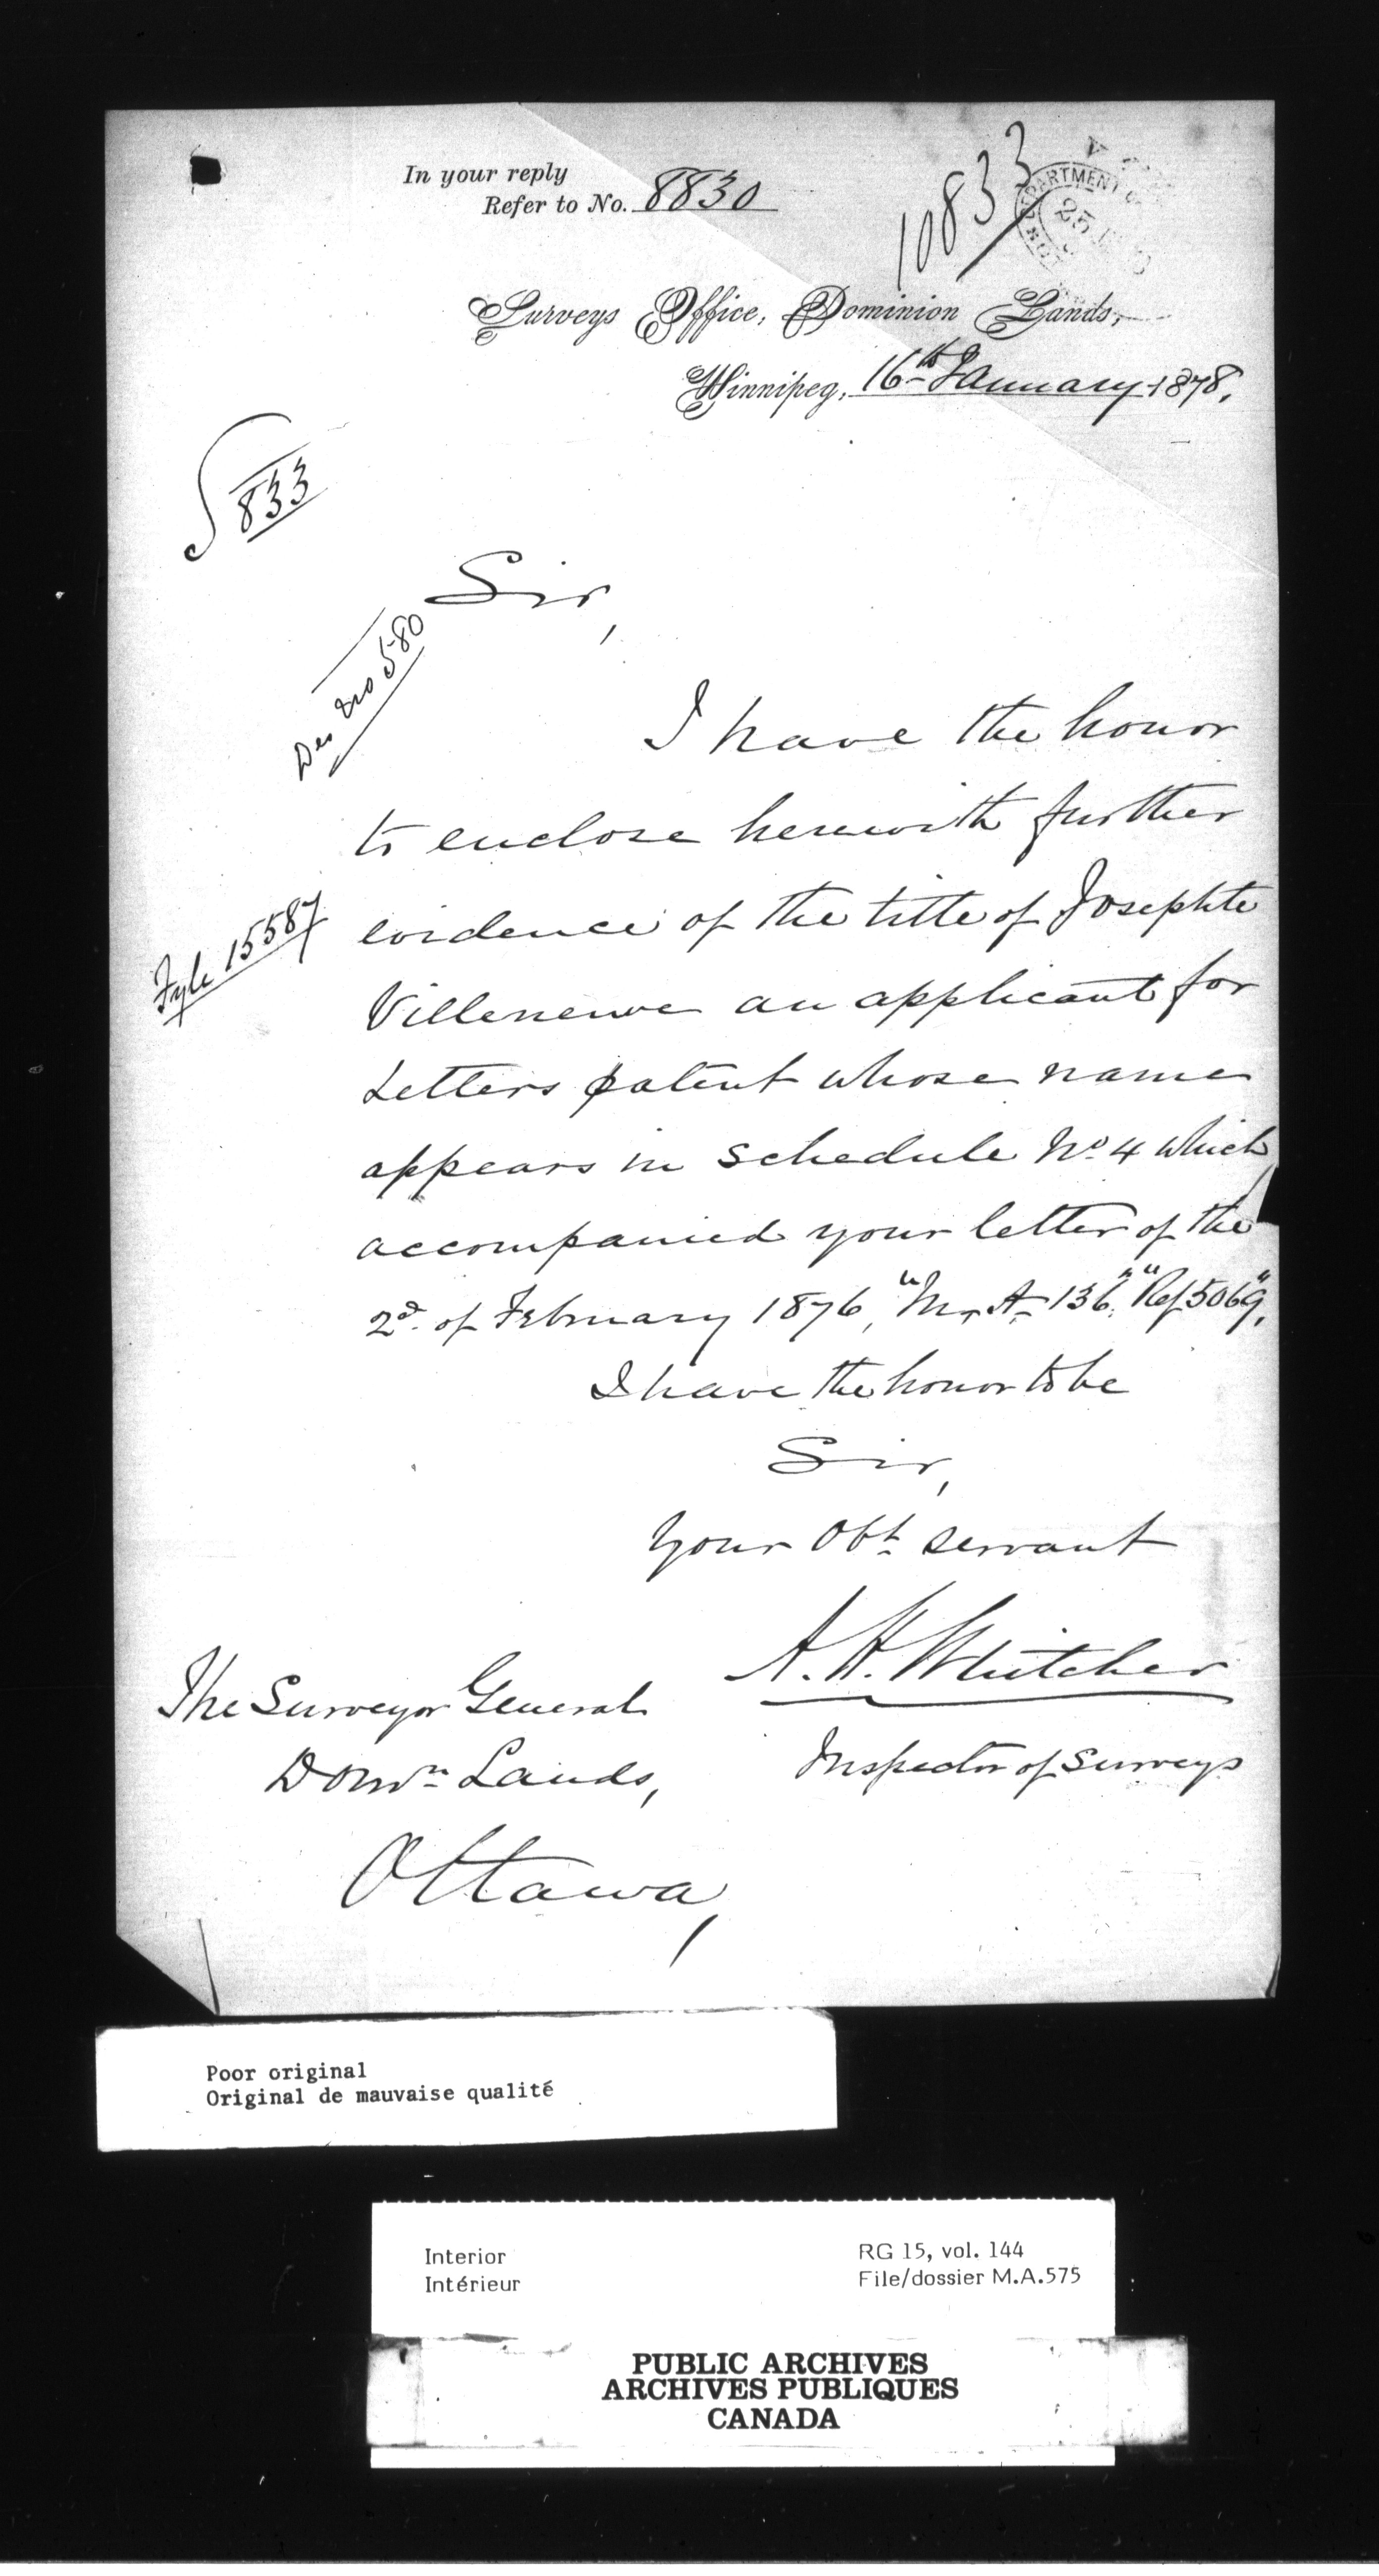 In your reply
Refer to No. 8830
10833
DEPARTMENT OF
25
Surveys Office, Dominion Lands,
Winnipeg, 16th January 1878.
833
Sir,
580
I have the honor
to enclose herewith further
Fyle 15587
evidence of the title of Josephte
Villeneuve an applicant for
Letters patent whose name
appears in schedule No 4 which
accompanied your letter of the
2d. of February 1876, "M. A. 136", "Ref 5069",
I have the honor to be
Sir,
Your Obt. servant
A. H. Whitcher
Inspector of Surveys
The Surveyor General
Domn. Lands,
Ottawa,
Poor original
Original de mauvaise qualité
Interior
Intérieur
RG 15, vol. 144
File/dossier M.A.575
PUBLIC ARCHIVES
ARCHIVES PUBLIQUES
CANADA